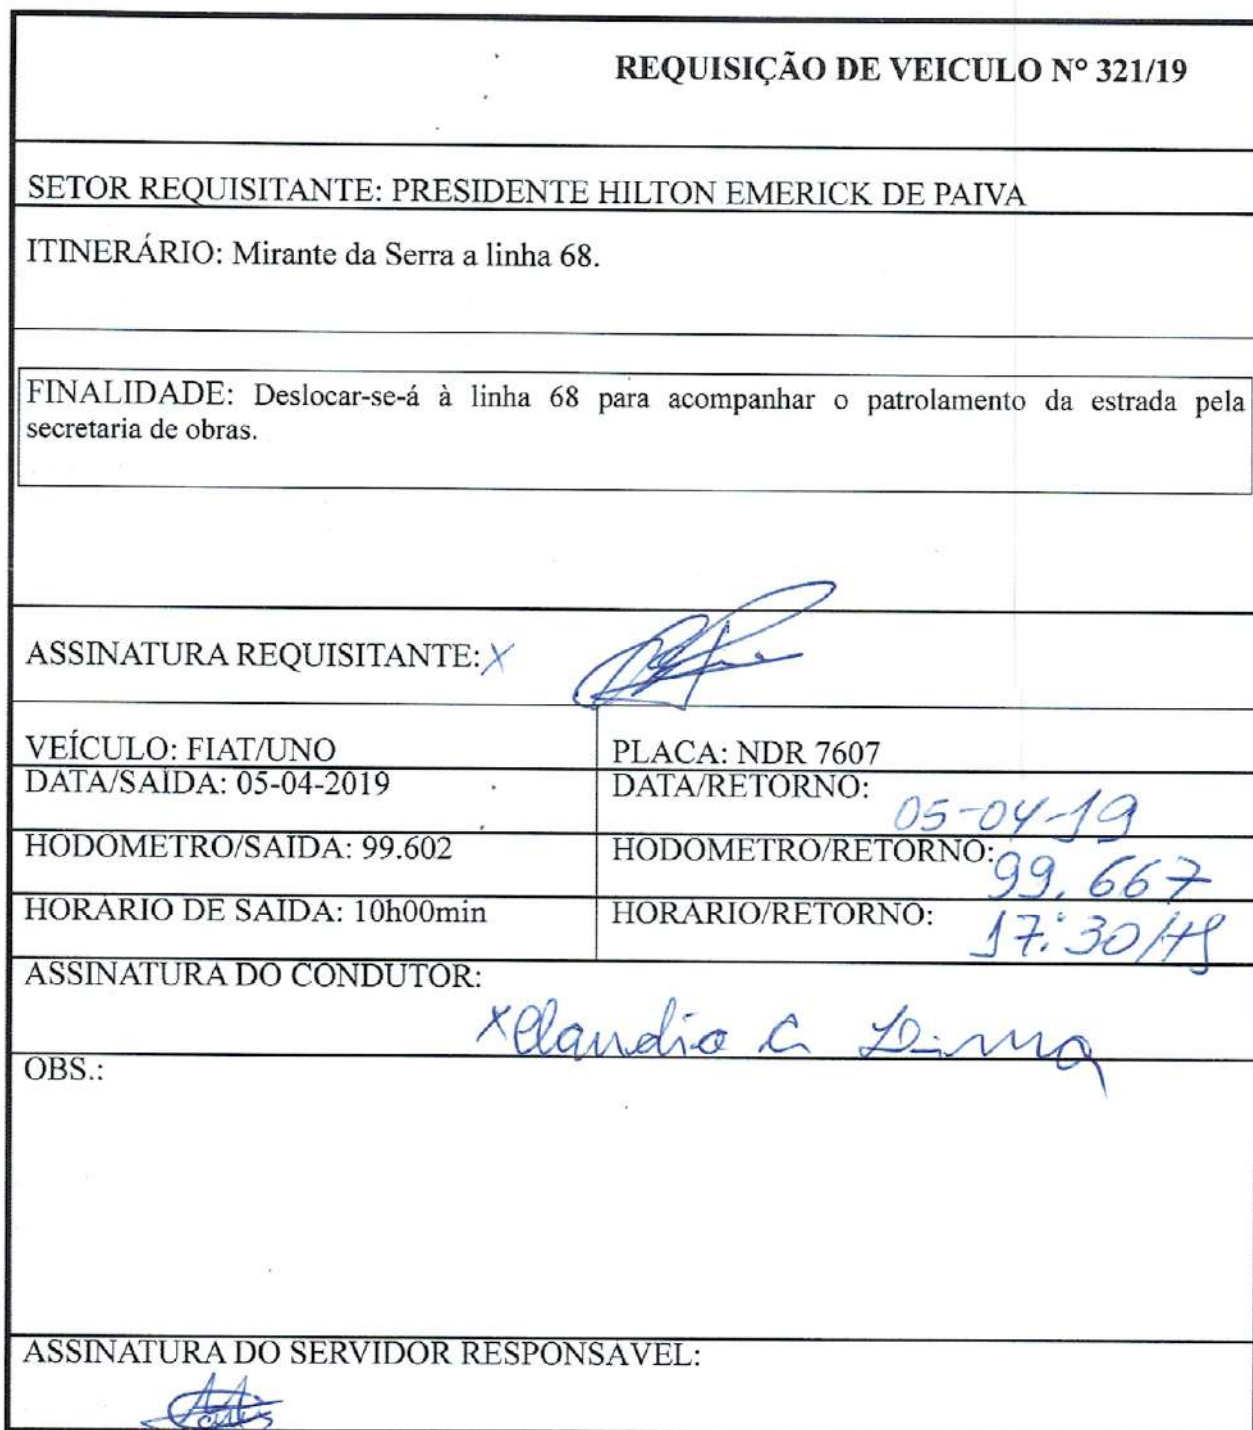 REQUISIÇÃO DE VEICULO Nº 321/19
SETOR REQUISITANTE: PRESIDENTE HILTON EMERICK DE PAIVA
ITINERÁRIO: Mirante da Serra a linha 68.
FINALIDADE: Deslocar-se-á à linha 68 para acompanhar o patrolamento da estrada pela
secretaria de obras.
ASSINATURA REQUISITANTE: X
VEÍCULO: FIAT/UNO PLACA: NDR 7607
DATA/SAÍDA: 05-04-2019 DATA/RETORNO: 05-04-19
HODOMETRO/SAÍDA: 99.602 HODOMETRO/RETORNO: 99.667
HORARIO DE SAIDA: 10h00min HORARIO/RETORNO: 17:30/HS
ASSINATURA DO CONDUTOR:
X Claudio C. Lima
OBS.:
ASSINATURA DO SERVIDOR RESPONSAVEL: